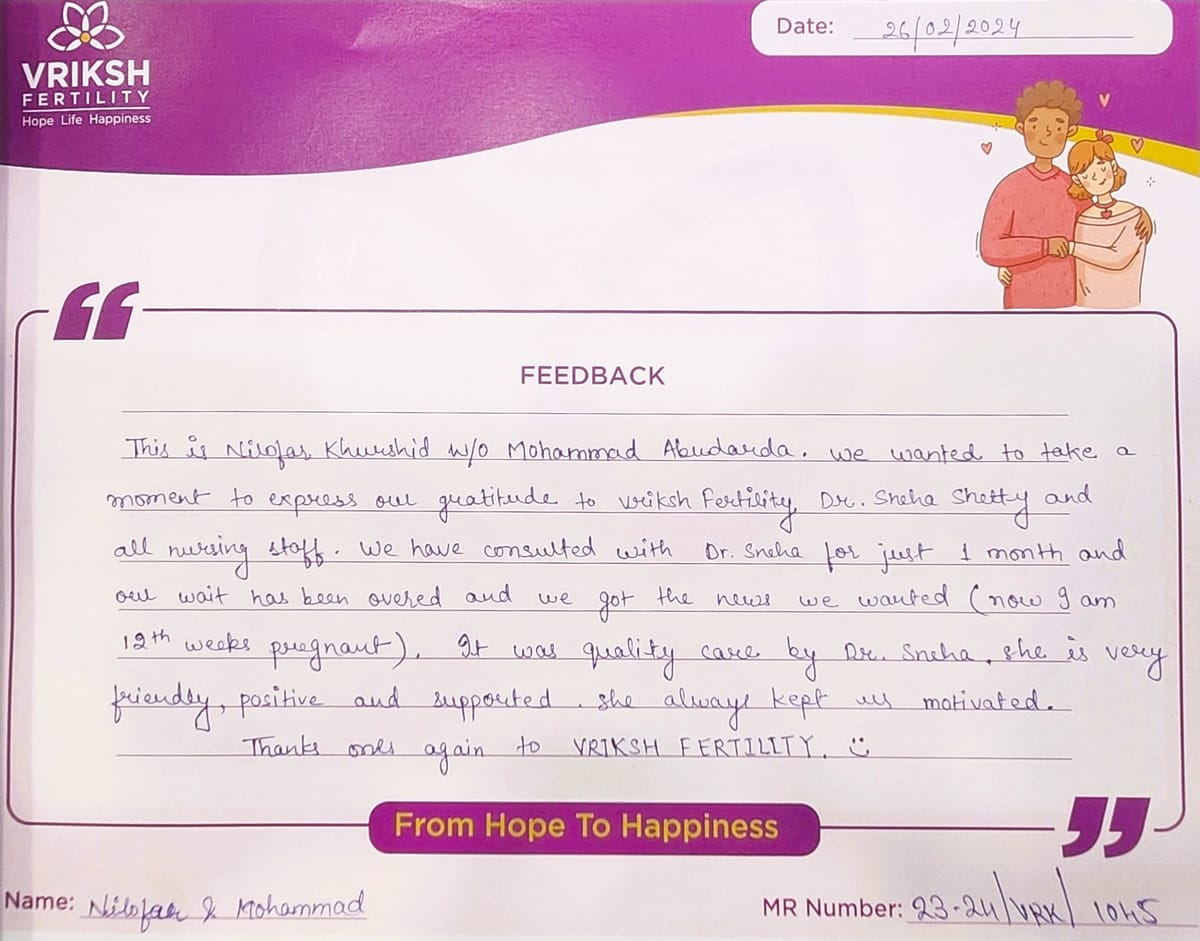 VRIKSH
FERTILITY
Hope Life Happiness
Date: 26/02/2024
FEEDBACK
This is Nilofar Khurshid w/o Mohammad Abudarda. We wanted to take a
moment to express our gratitude to vriksh Fertility, Dr. Sneha Shetty and
all nursing staff. We have consulted with Dr. Sneha for just 1 month and
our wait has been overed and we got the news we wanted (now I am
12th weeks pregnant). It was quality care by Dr. Sneha, she is very
friendly, positive and supported. she always kept us motivated.
Thanks ones again to VRIKSH FERTILITY. :)
From Hope To Happiness
Name: Nilofar & Mohammad
MR Number: 23-24/VRK/1045